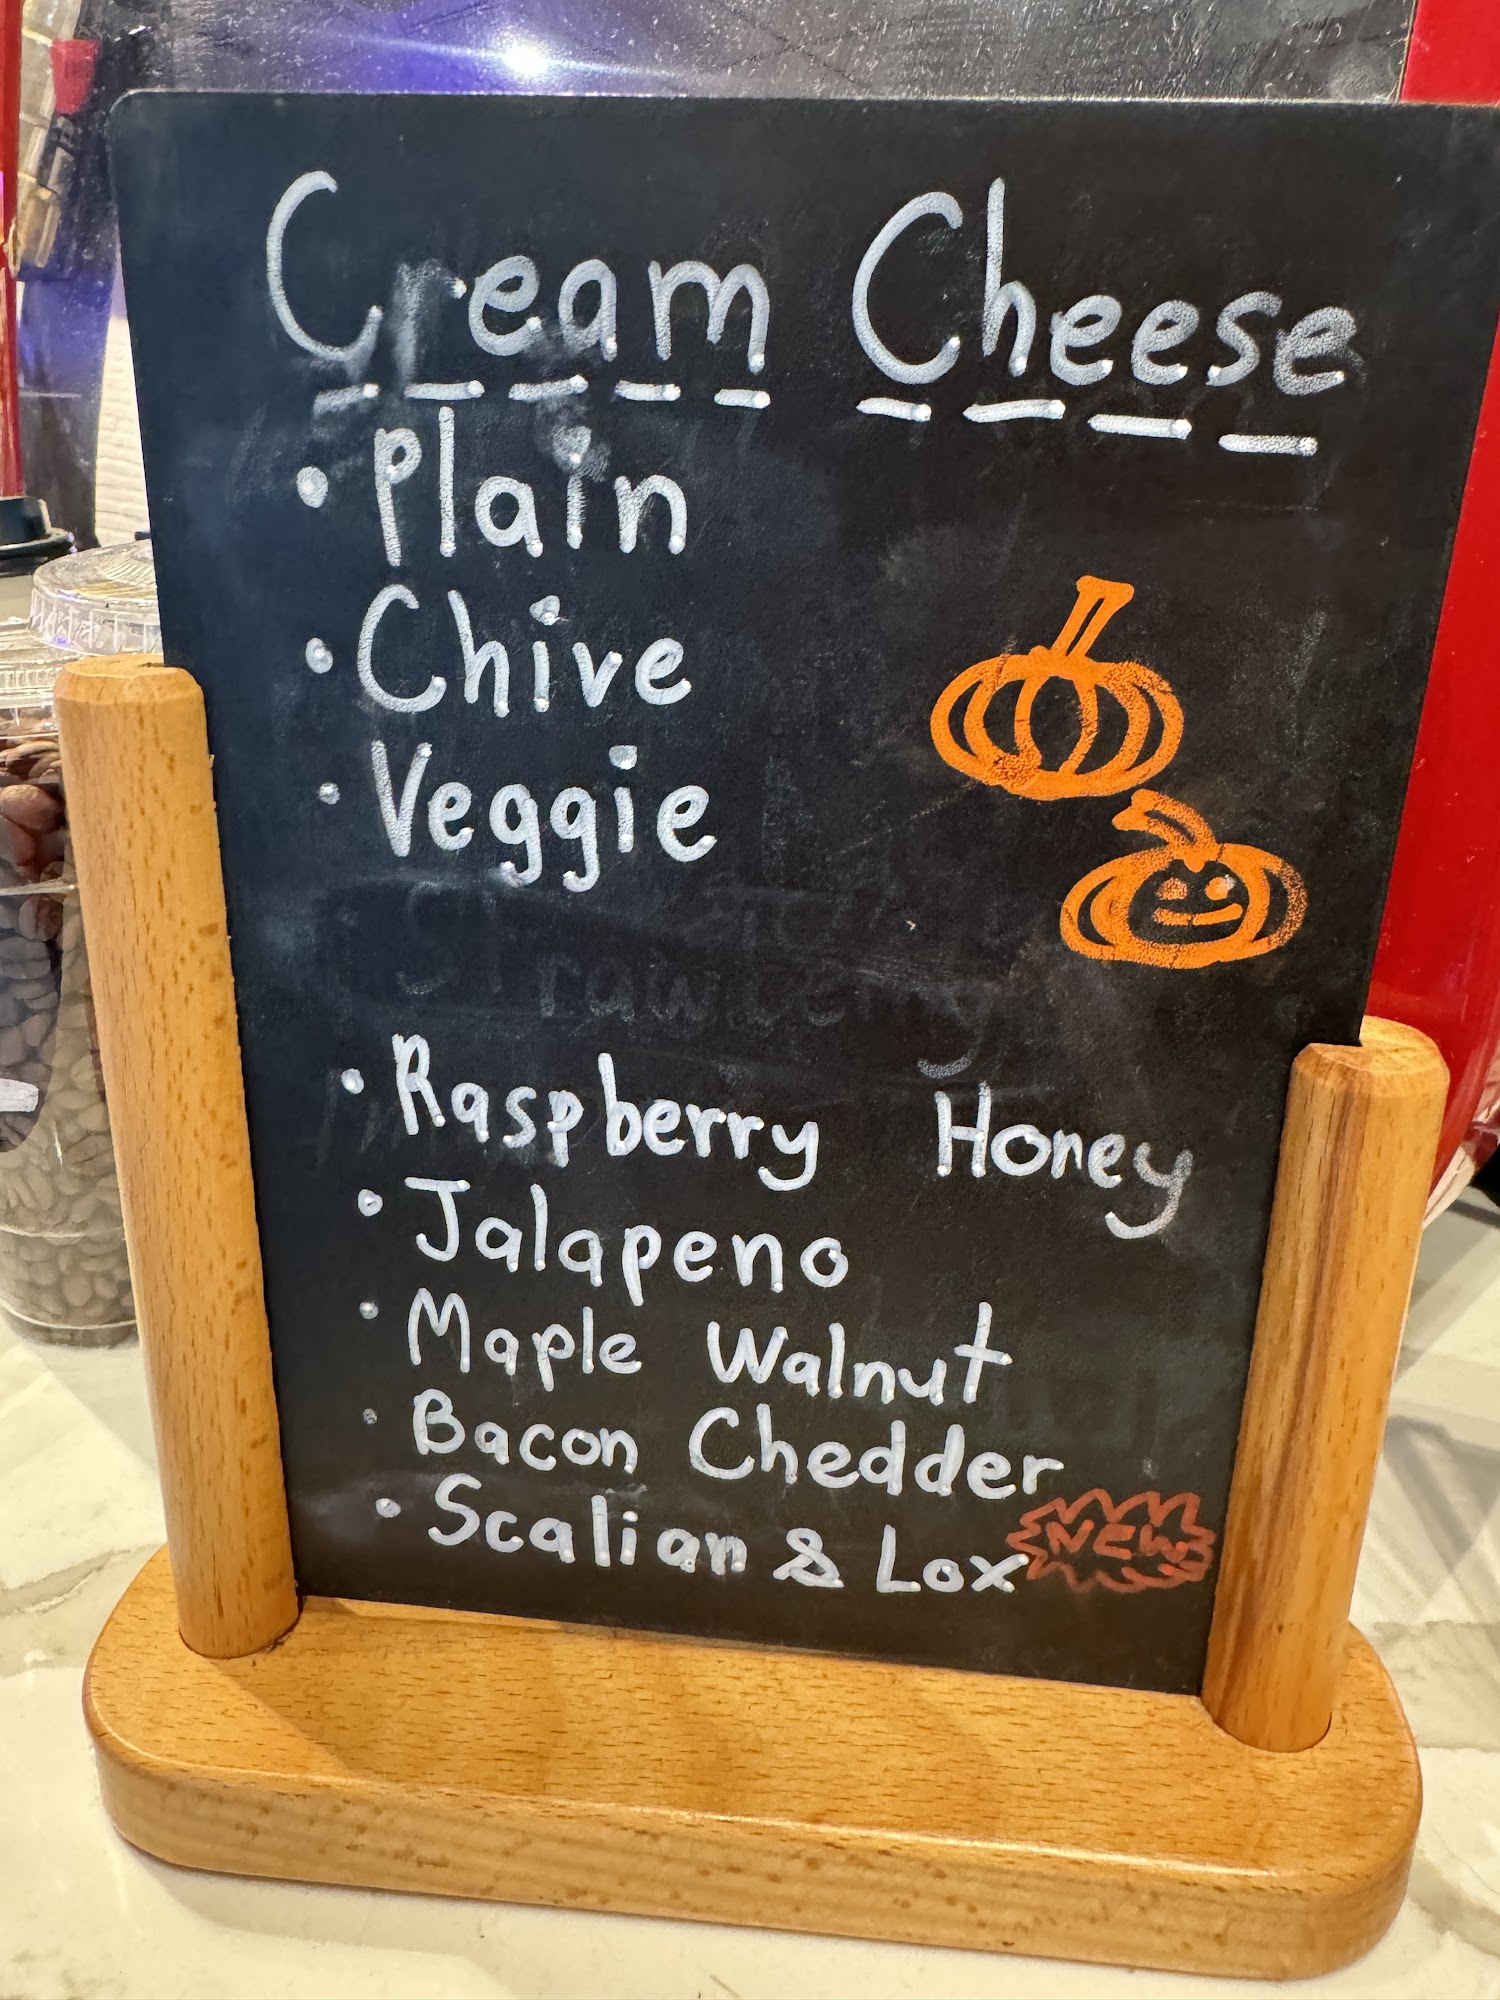 Cream Cheese
• Plain
• Chive
• Veggie
• Raspberry Honey
• Jalapeno
• Maple Walnut
• Bacon Chedder
• Scalian & Lox NEW